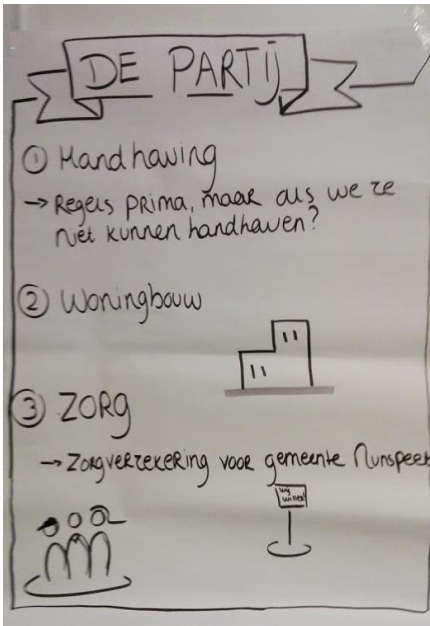 DE PARTIJ
① Handhaving
→ Regels prima, maar als we ze
niet kunnen handhaven?
② Woningbouw
③ ZORG
→ Zorgverzekering voor gemeente Nunspeet